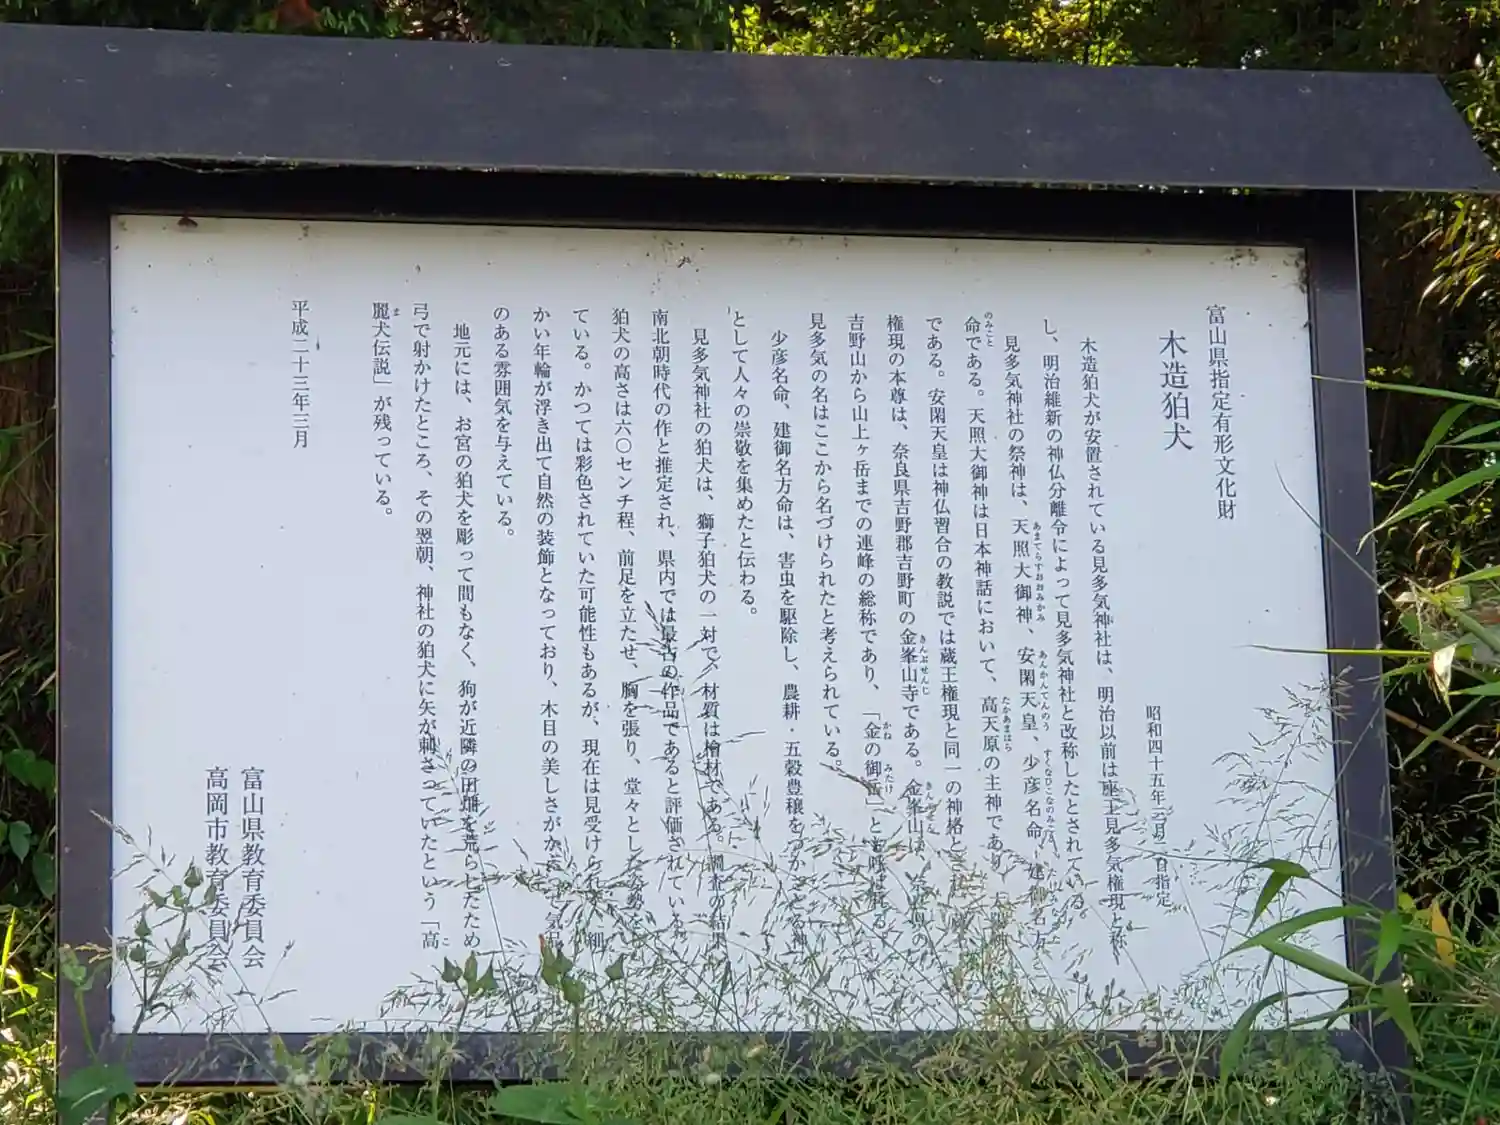 富山県指定有形文化財
木造狛犬
昭和四十五年 月 日指定
木造狛犬が安置されている見多気神社は、明治以前は座王見多気権現と称
し、明治維新の神仏分離令によって見多気神社と改称したとされている。
見多気神社の祭神は、天照大御神、安閑天皇、少彦名命、建御名方
命である。天照大御神は日本神話において、高天原の主神であり、
である。安閑天皇は神仏習合の教説では蔵王権現と同一の神格と
権現の本尊は、奈良県吉野郡吉野町の金峯山寺である。金峯山は、奈良県の
吉野山から山上ヶ岳までの連峰の総称であり、「金の御岳」とも呼ばれる。
見多気の名はここから名づけられたと考えられている。
少彦名命、建御名方命は、害虫を駆除し、農耕・五穀豊穣をつかさどる神
として人々の崇敬を集めたと伝わる。
見多気神社の狛犬は、獅子狛犬の一対で、材質は檜材である。調査の結果
南北朝時代の作と推定され、県内では最古の作品であると評価されている。
狛犬の高さは六〇センチ程、前足を立たせ、胸を張り、堂々とした姿勢を
ている。かつては彩色されていた可能性もあるが、現在は見受けられ 細
かい年輪が浮き出て自然の装飾となっており、木目の美しさが 気品
のある雰囲気を与えている。
地元には、お宮の狛犬を彫って間もなく、狗が近隣の田畑を荒らしたため
弓で射かけたところ、その翌朝、神社の狛犬に矢が刺さっていたという「高
麗犬伝説」が残っている。
平成二十三年三月
富山県教育委員会
高岡市教育委員会